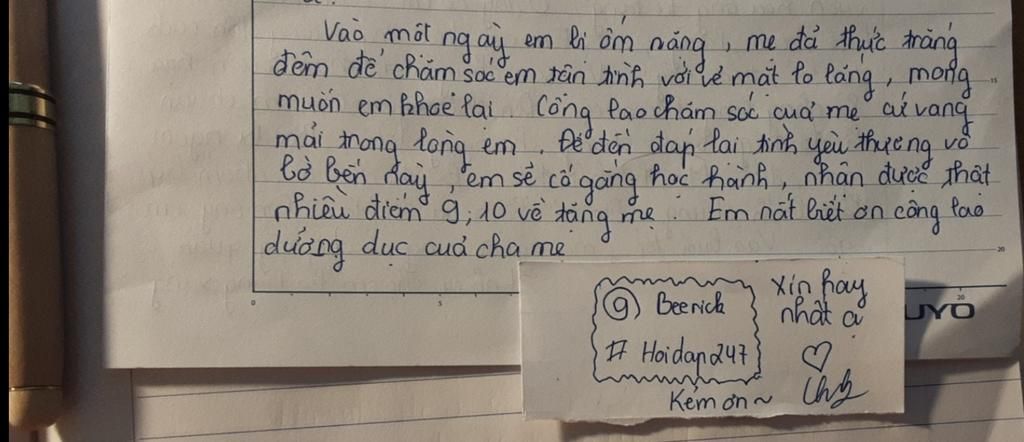 Vào một ngày em bị ốm nặng, mẹ đã thức trắng
đêm để chăm sóc em tận tình với vẻ mặt lo lắng, mong
muốn em khoẻ lại. Công lao chăm sóc của mẹ cứ vang
mãi trong lòng em. Để đền đáp lại tình yêu thương vô
bờ bến này, em sẽ cố gắng học hành, nhận được thật
nhiều điểm 9, 10 về tặng mẹ. Em rất biết ơn công lao
dưỡng dục của cha mẹ
15
20
0
5
20
UYO
@ Beerick
# Hoidap247
Xin hay
nhất ạ
♡
Kẻm ơn~